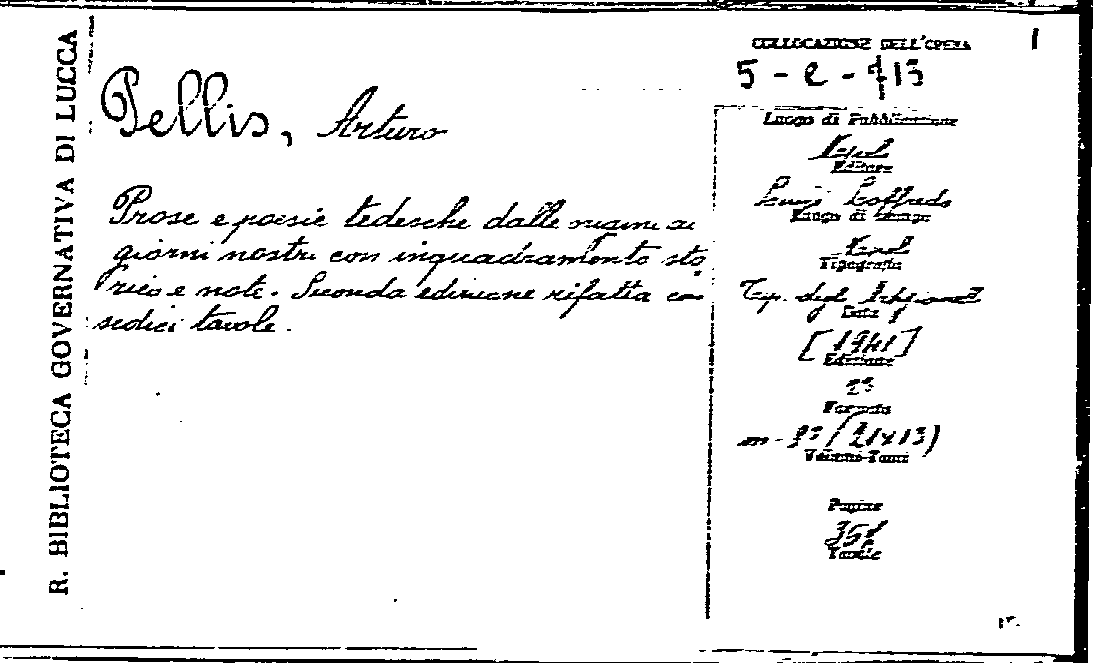 R. BIBLIOTECA GOVERNATIVA DI LUCCA
Pellis, Arturo
Prose e poesie tedesche dalle origini ai
giorni nostri con inquadramento sto
rico e note. Seconda edizione rifatta con
sedici tavole.
COLLOCAZIONE DELL'OPERA
1
5 - e - 713
Luogo di Pubblicazione
Napoli
Editore
Luigi Loffredo
Luogo di stampa
Napoli
Tipografia
Tip. degli Artigianelli
Data
[1941]
Edizione
2ª
Formato
m - 8° (21x13)
Volume-Tomi
Pagine
Tavole